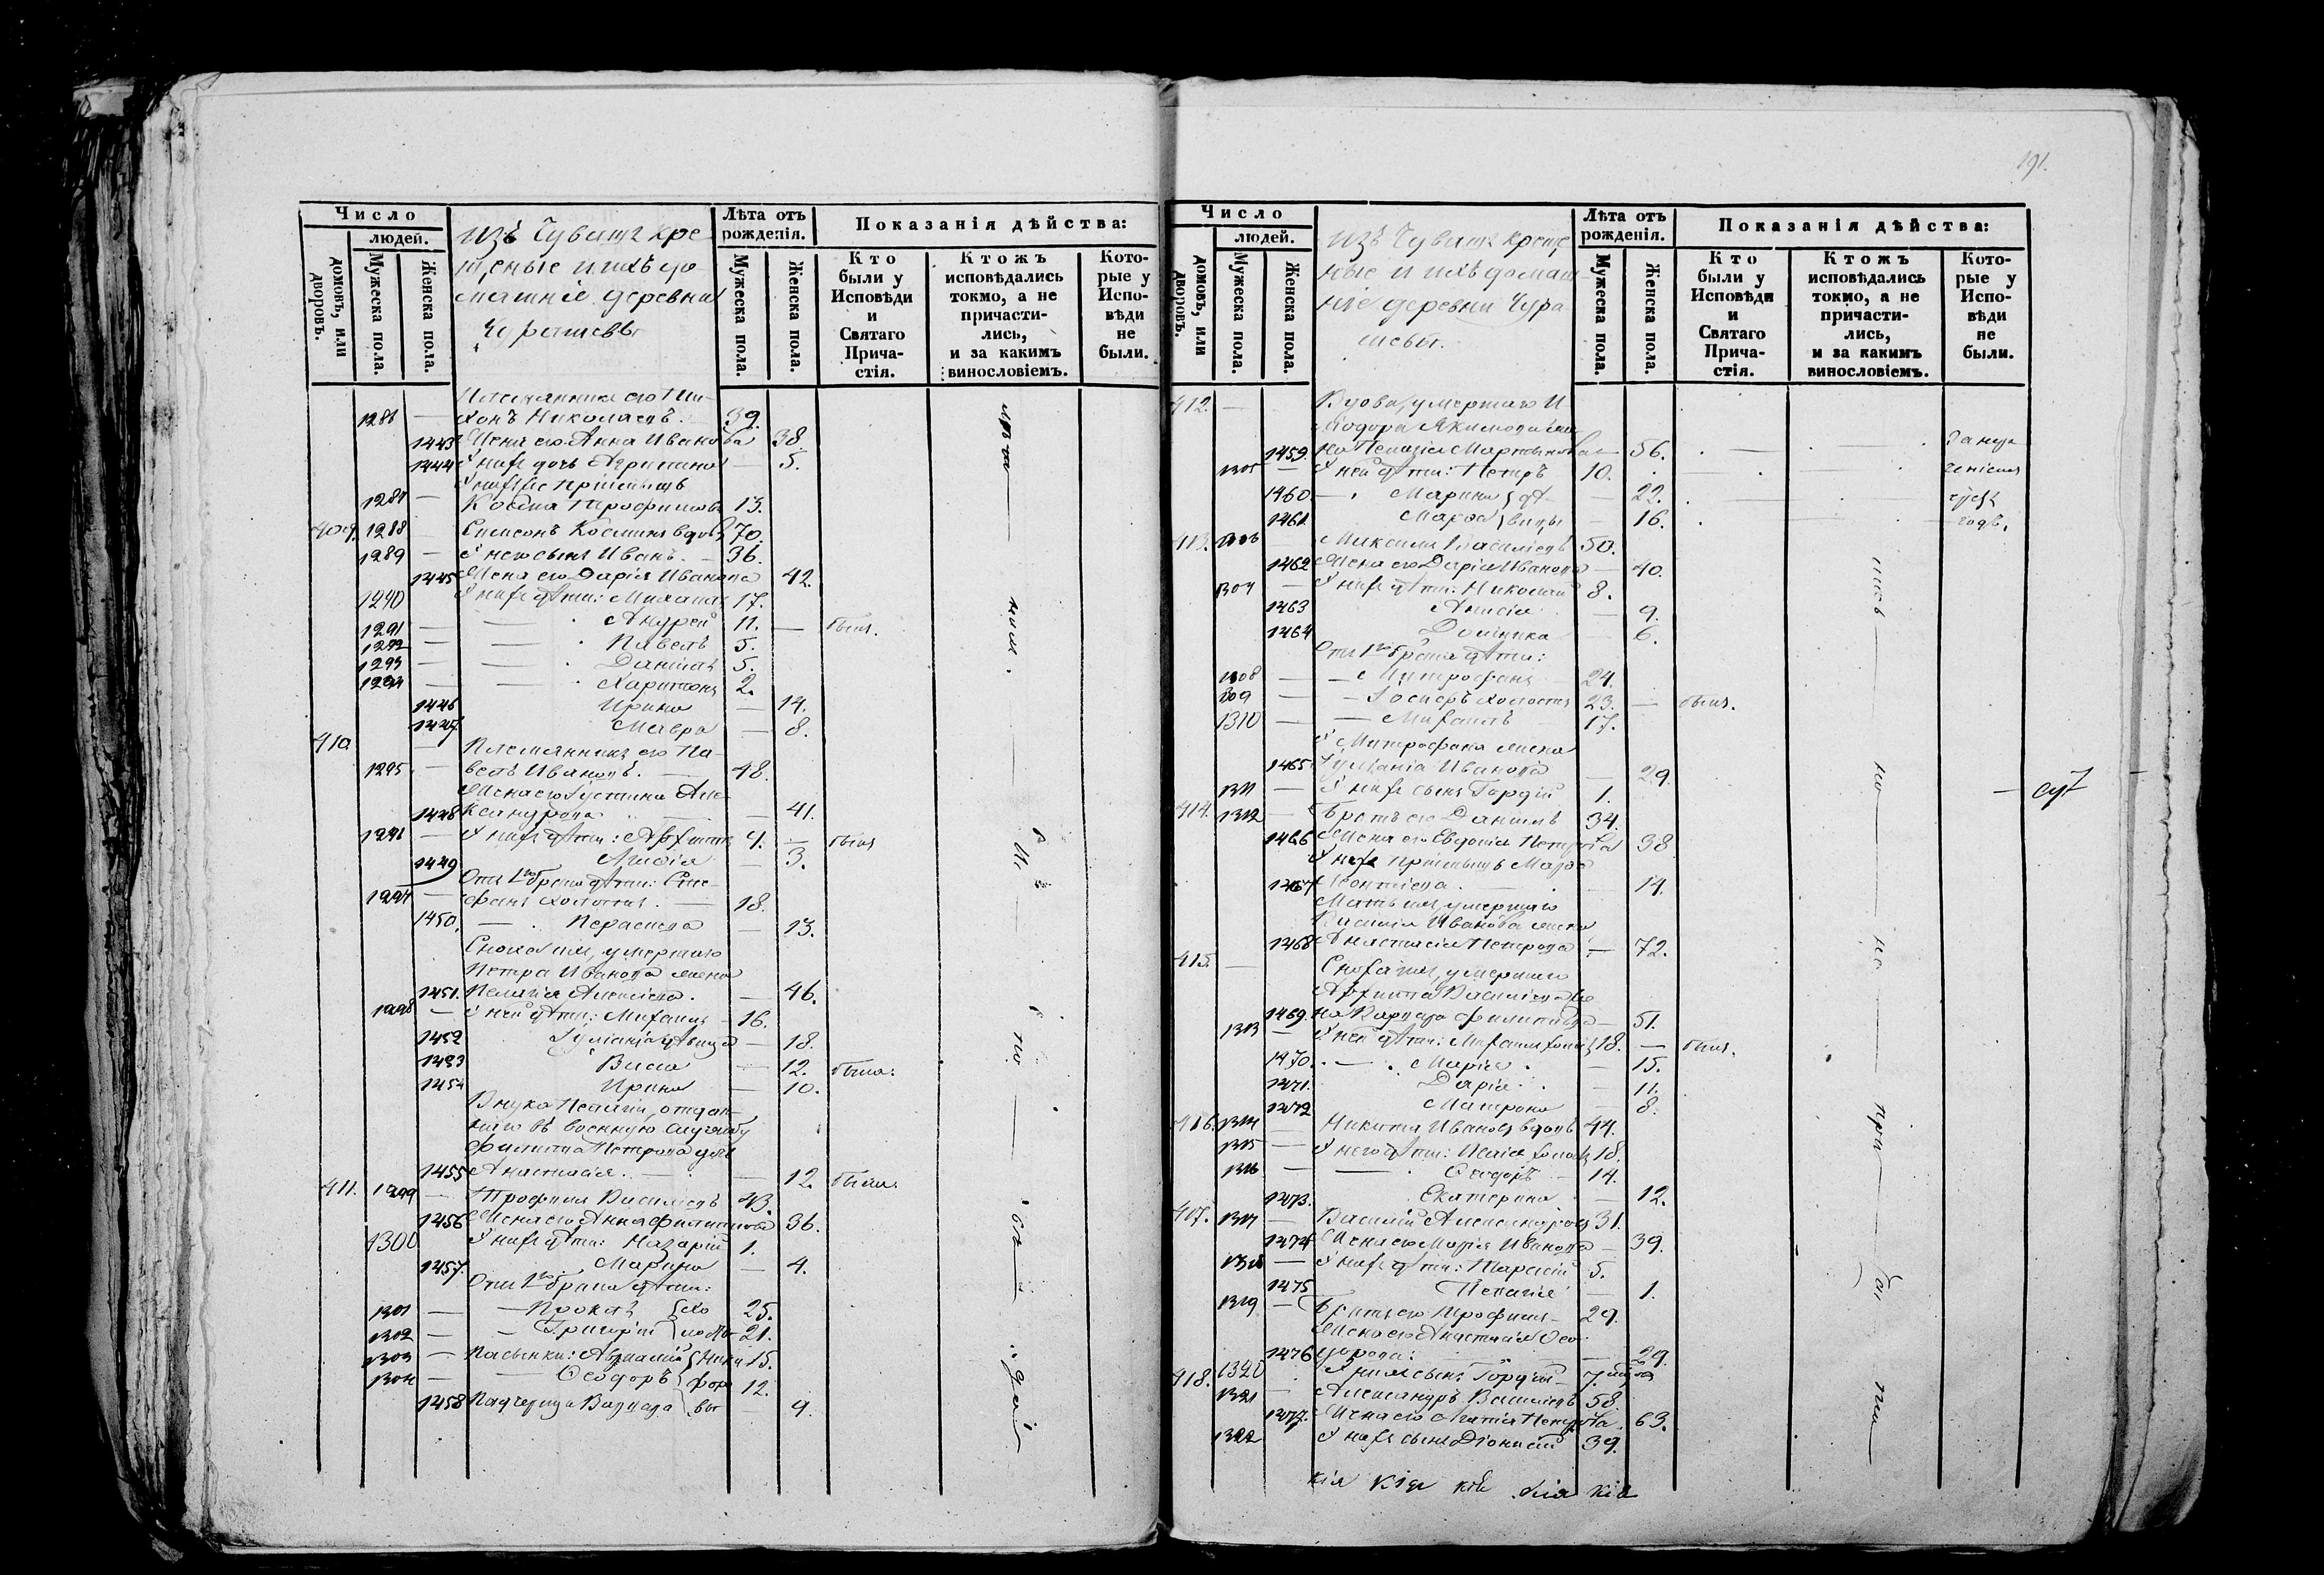 191.
Число
людей.
домовъ, или дворовъ.
Мужеска пола.
Женска пола.
Изъ Чувашъ кре
щеные и ихъ до-
машніе деревни
Чурашевы
Лѣта отъ рожденія.
Мужеска пола.
Женска пола.
Показанія дѣйства:
Кто были у Исповѣди и Святаго Прича-стія.
Ктожъ исповѣдались токмо, а не причасти-лись, и за какимъ винословіемъ.
Кото-рые у Испо-вѣди не были.
Племянникъ его Ти-
хонъ Николаевъ. 39.
1443 Жена его Анна Иванова 38.
1444 У нихъ дочь Агрипина — 5.
У нихъ же приемышъ
Косма Трофимовъ 13.
409. 1288 Симеонъ Косминъ вдовъ 70.
1289 — У него сынъ Иванъ. — 36.
1445 Жена его Дарія Иванова 42.
1290 У нихъ дѣти: Михаилъ 17.
1291 — Андрей 11. — былъ.
1292 — Павелъ 5.
1293 — Даніилъ 5.
1294 — Харитонъ 2.
1446 Ирина — 14.
1447 Мавра — 8.
410 Племянникъ его Па-
1295 — велъ Ивановъ. — 48.
Жена его Іустина Але-
1448 ксандрова — 41.
1296 — У нихъ дѣти: Архиппъ 9. — былъ
1449 3.
Отъ 1го брака дѣти: Сте-
1297 — фанъ холостъ. — 18.
1450. — Параскева — 13.
Сноха имъ, умершаго
Петра Иванова жена
1451. Пелагія Алексіева. — 46.
1298 — У ней дѣти: Михаилъ — 16.
1452 Іуліанія дѣвица — 18.
1453 Васса — 12. была.
1454 Ирина — 10.
Внука Пелагіи, отдан-
наго въ военную службу
Филиппа Петрова дочь
1455 Анастасія. — 12. была.
411. 1299 — Трофимъ Василіевъ 43.
1456 Жена его Анна Филиппова 36.
1300 У нихъ дѣти: Назарій 1.
1457. Марина — 4.
Отъ 1го брака дѣти:
1301 — Проклъ хо 25.
1302 — Григорій лосты 21.
1303 — Пасынки: Аврамій Ники 15.
1304 — Ѳеодоръ форо 12.
1458 Падчерица Варвара вы — 9.
Число
людей.
домовъ, или дворовъ.
Мужеска пола.
Женска пола.
Изъ Чувашъ креще
ные и ихъ домаш-
ніе деревни Чура
шевы.
Лѣта отъ рожденія.
Мужеска пола.
Женска пола.
Показанія дѣйства:
Кто были у Исповѣди и Святаго Прича-стія.
Ктожъ исповѣдались токмо, а не причасти-лись, и за какимъ винословіемъ.
Кото-рые у Испо-вѣди не были.
412. — Вдова, умершаго И
сидора Якимова же
1459. на Пелагія Мартынова — 56.
1305 — У ней дѣти: Петръ 10.
1460 — Марина дѣ — 22.
1461 Марѳа вицы — 16.
413. 1306 Максимъ Василіевъ 50.
1462 Жена его Дарія Иванова — 40.
1307 — У нихъ дѣти: Николай 8.
1463 Анисія — 9.
1464 Домника — 6.
Отъ 1го брака дѣти:
1308 — Митрофанъ 24.
1309 — Іосифъ холостъ 23. — былъ.
1310 — Михаилъ 17.
У Митрофана жена
1465 Іуліанія Иванова — 29.
1311 — У нихъ сынъ Гордій 1.
414. 1312 — Братъ его Даніилъ 34.
1466 Жена его Евдокія Петрова 38
У нихъ приемышъ Марѳа
1467 Леонтіева. — 14.
Мать имъ, умершаго
Василія Иванова жена
1468 Анастасія Петрова — 72.
415. — Сноха имъ, умершаго
Архиппа Василіева же
1469. на Варвара Филиппова — 51.
1313 — У ней дѣти: Михаилъ холос. 18. — былъ.
1470. — Марія — 15.
1471. Дарія — 11.
1472 Матрона — 8.
416. 1314 — Никита Ивановъ вдовъ 44.
1315 — У него дѣти: Исаія холос. 18.
1316 — Ѳеодоръ — 14.
1473. Екатерина — 12.
417. 1317 — Василій Александровъ 31.
1474 Жена его Марія Иванова — 39.
1318 — У нихъ дѣти: Тарасій 5.
1475 Пелагія — 1.
1319 — Братъ его Трофимъ — 29.
Жена его Анастасія Ѳео-
1476 дорова: — 29.
1320 У нихъ сынъ Гордій — 7.
418. 1321 — Александръ Василіевъ 58.
1477. Жена его Агапія Петрова 63.
1322 У нихъ сынъ Діонисій 39.